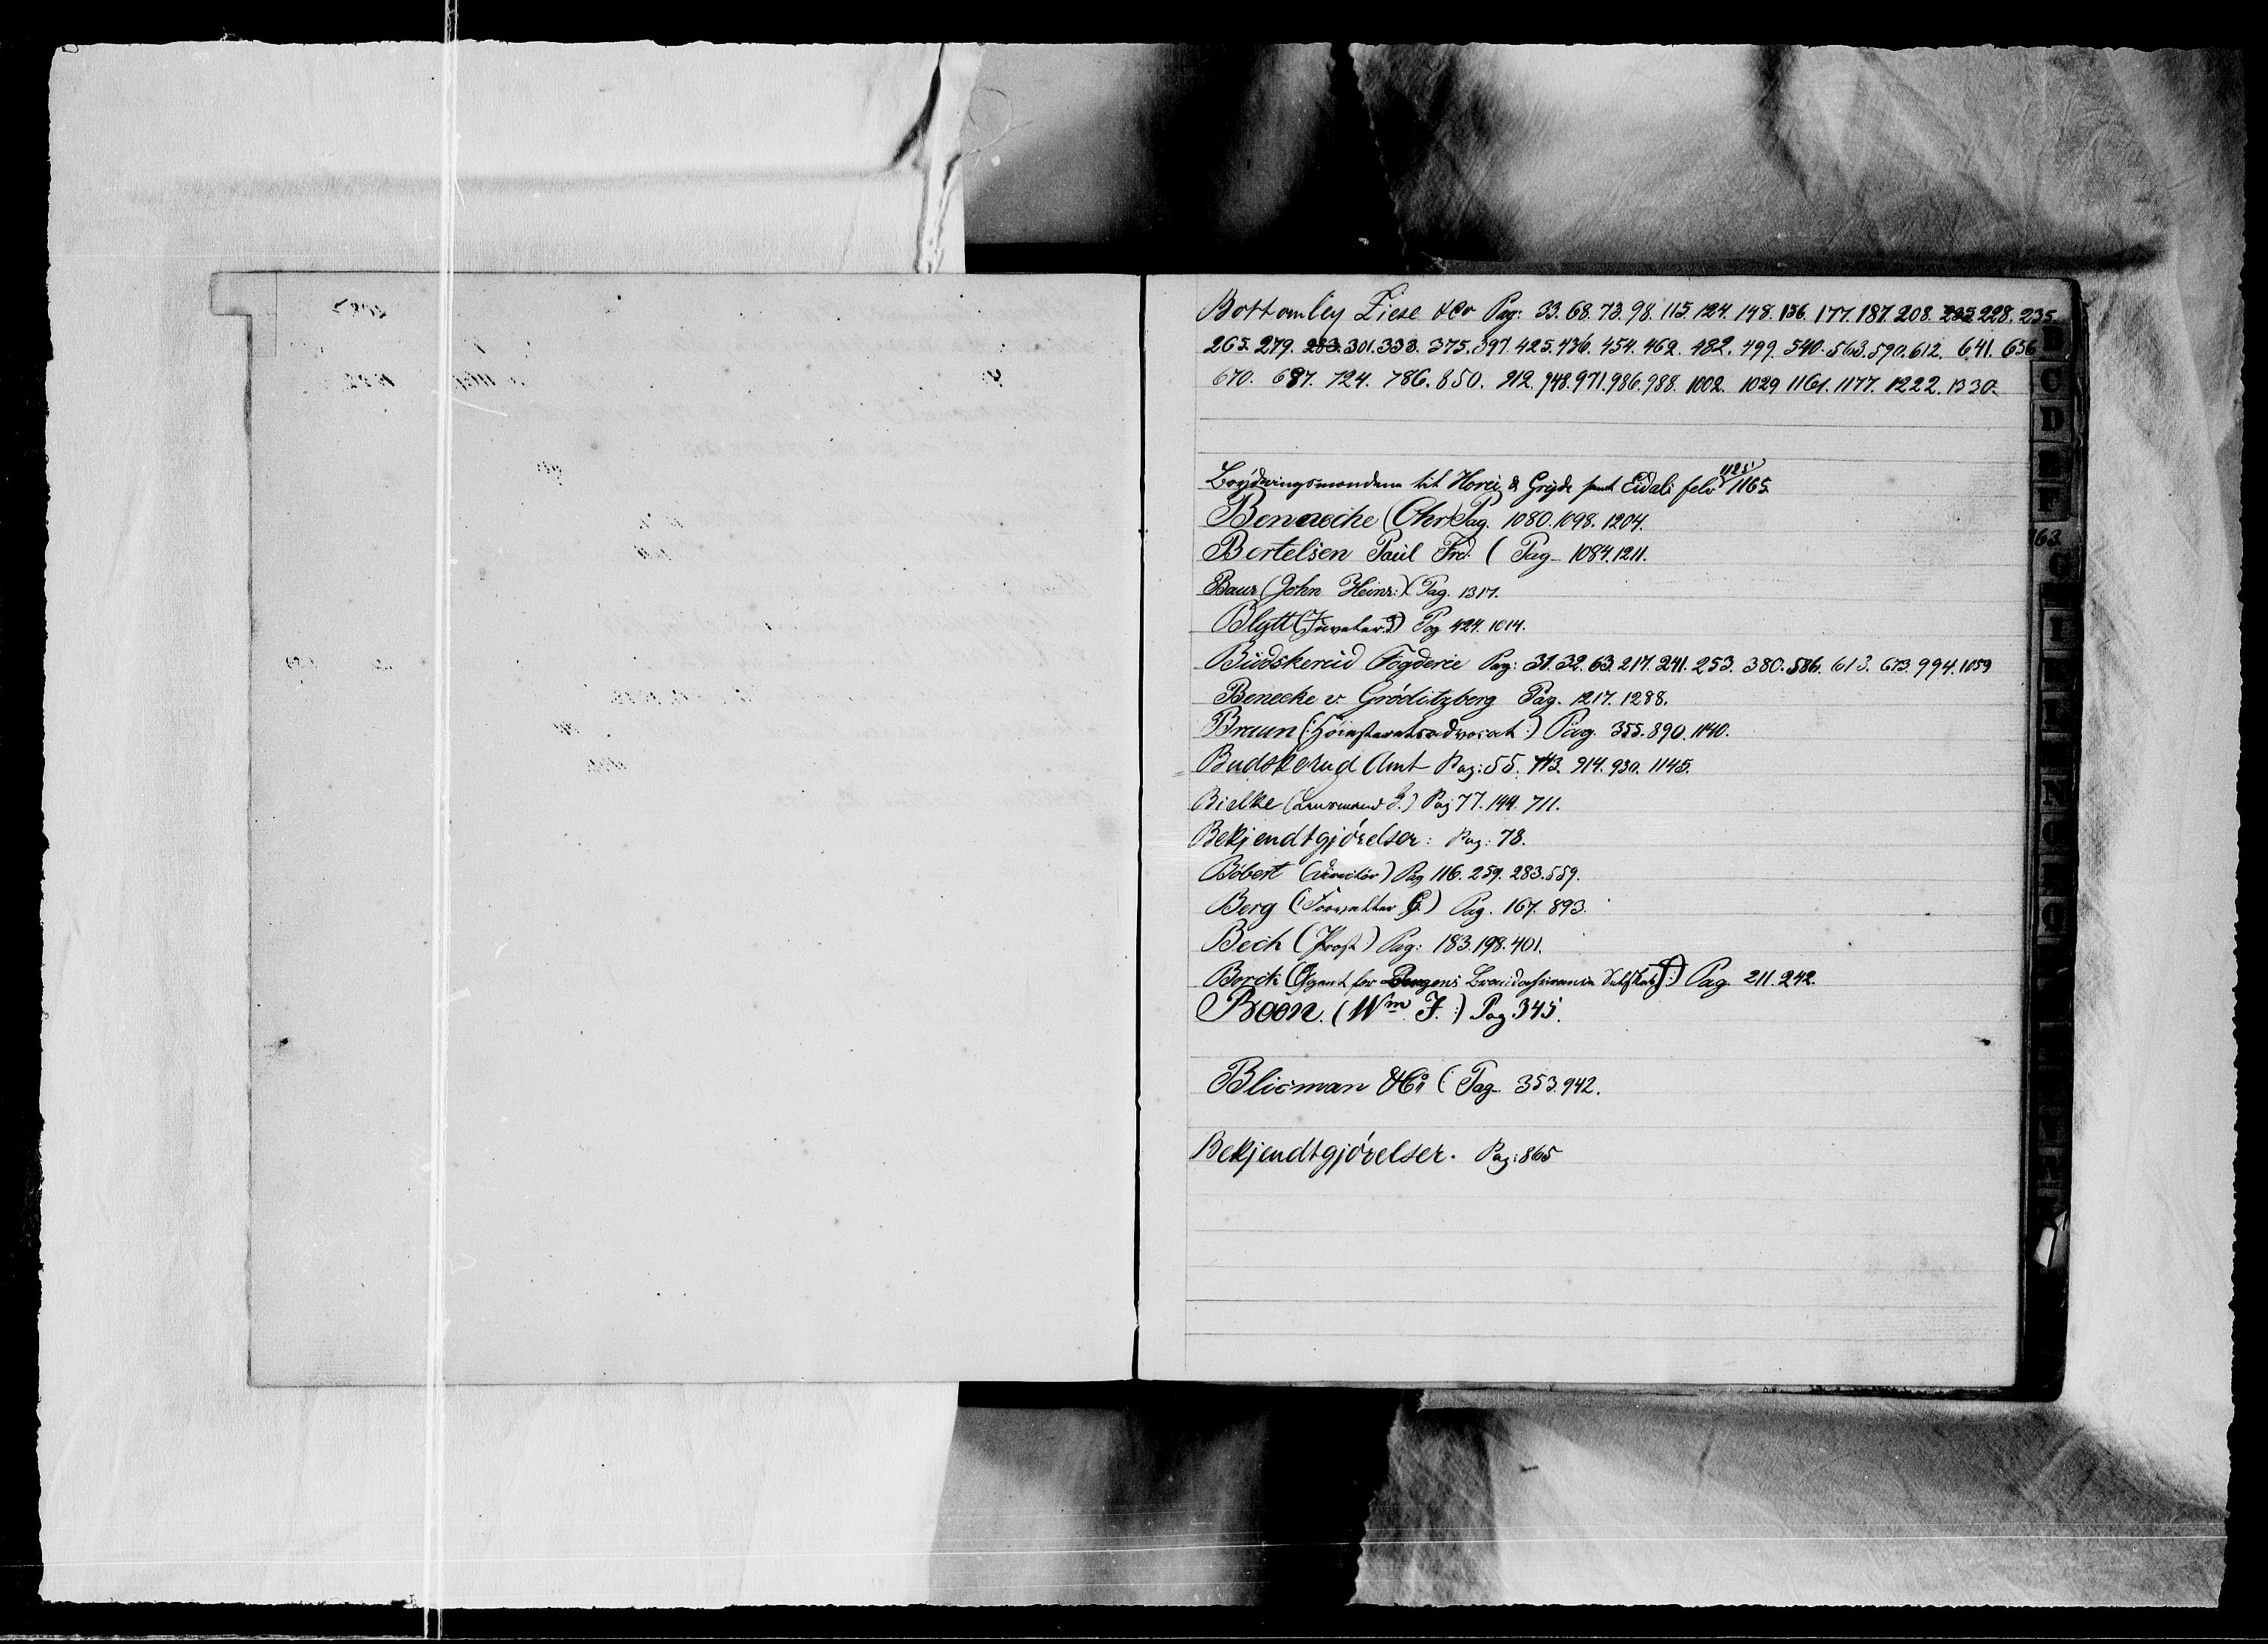 Bottomley Ziese & Co Pag: 33. 68. 73. 98. 115. 124. 148. 156. 177. 187. 208. 228. 235.
265. 279. 283. 301. 333. 375. 397. 425. 436. 454. 462. 482. 499. 540. 563. 590. 612. 641. 656
670. 687. 724. 786. 850. 912. 948. 971. 986. 988. 1002. 1029 1161. 1177. 1222. 1330.
til & Gryde samt Eidals 1125 1165
Benneche (Chr) Pag. 1080. 1098. 1204.
Bertelsen Paul Frd. ( Pag 1084. 1211.
163
Baur (John Heinr:) (Pag. 1317.
Blytt Pag 424. 1014.
Budskerud Fogderie Pag: 31. 32. 63. 217. 241. 253. 380. 586. 613. 673. 994. 1059
Benecke v. Gröditzberg Pag. 1217. 1288.
Bruun (: Höiesteretsadvocat :) Pag. 355. 890. 1140.
Budskerud Amt Pag: 55. 743. 914. 930. 1145.
Bielke (Lensmand G.) Pag 77. 144. 711.
Bekjendtgjörelser: Pag: 78.
Böbert (Director) Pag 116. 259. 283. 559.
Berg (: Forvalter G.) Pag. 167. 893.
Bech (Provst) Pag: 183. 198. 401.
Borck (Agent for Bergens Brandassurance Selskab :) Pag. 211. 242.
Boon. (Wm J. :) Pag 345.
Blicman & Co ( Pag 353. 942.
Bekjendtgjörelser. Pag: 865